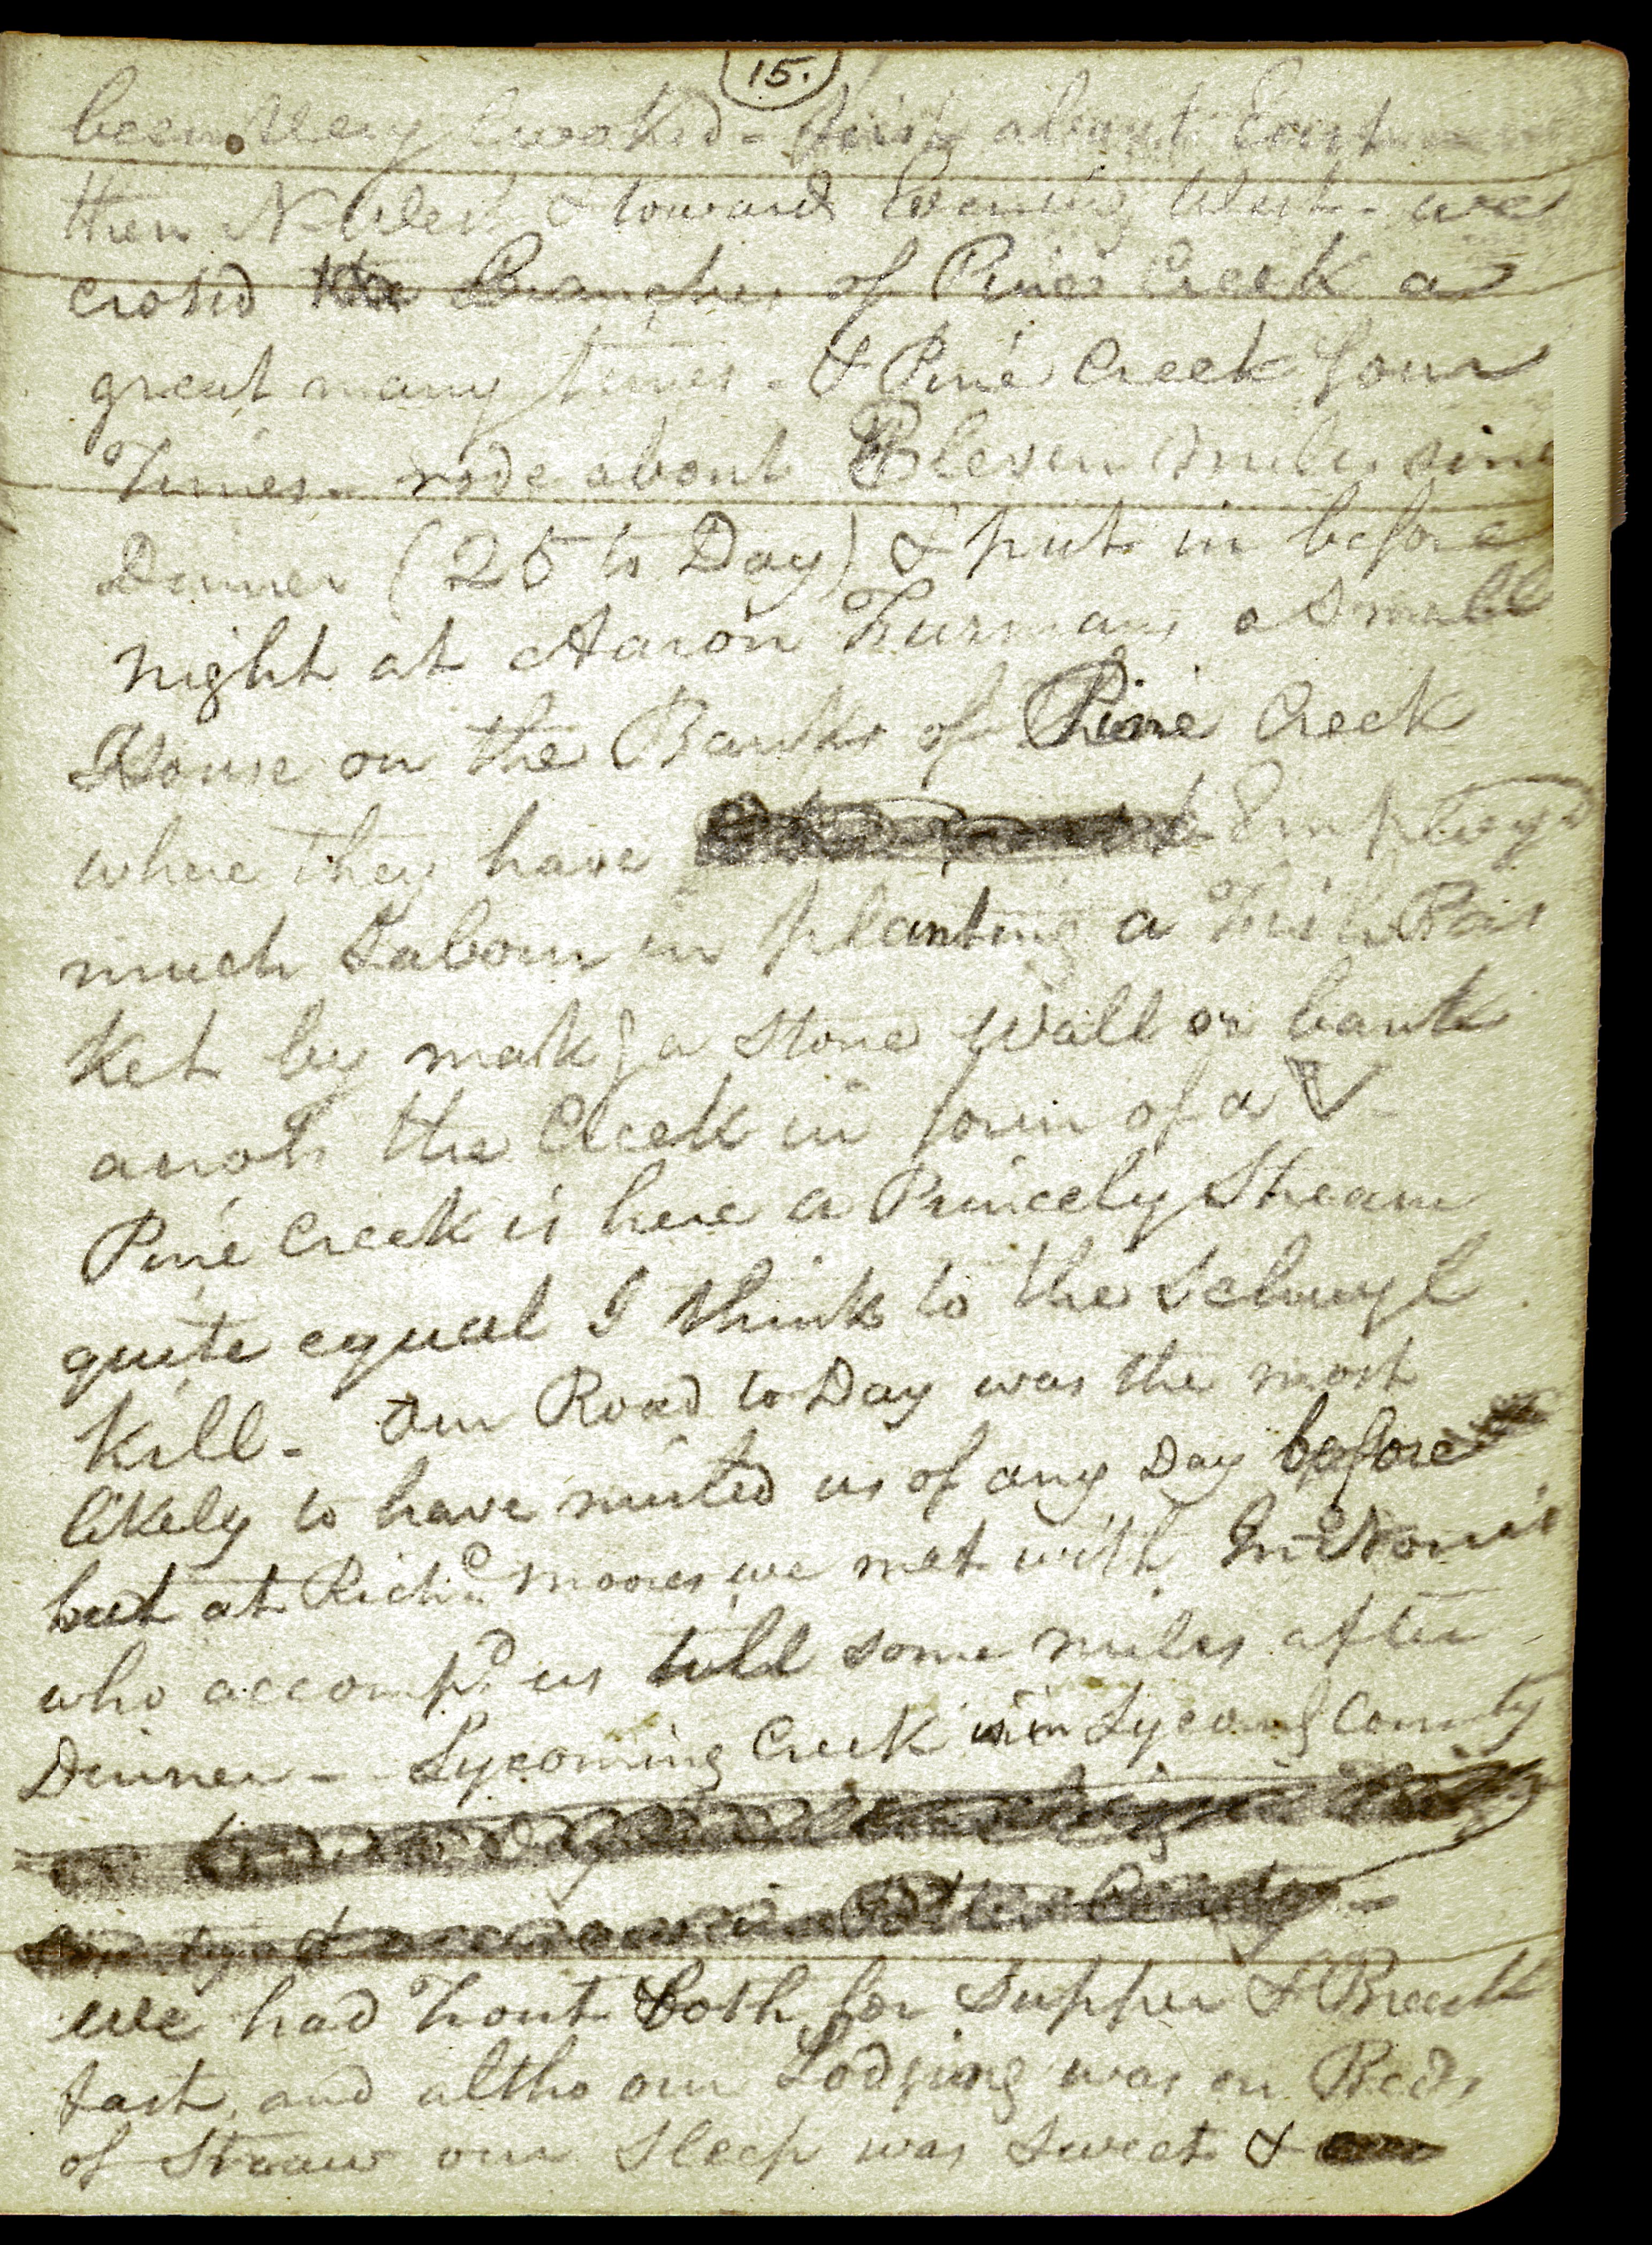 15.
been very Crooked - first about East
then N West & toward Evening West - we
crossd the Branches of Pine Creek a
great many times - & Pine Creek four
Times - rode about Eleven miles since
Dinner (25 to Day) & put in before
Night at Aaron Furmans a Small
House on the Banks of Pine Creek
where they have Employd
much Labour in planting a Fish Bas
ket by makg a Stone Wall or bank
across the Creek in form of a V -
Pine Creek is here a Princely Stream
quite equal I think to the Schuyl
Kill - Our Road to Day was the most
likely to have misled us of any Day before
but at Richd Moores we met with Jno Norris
who accompd us till some miles after
Dinner - Lycoming Creek is in Lycomg County
we had Trout both for Supper & Break
fast, and altho our Lodging was on Beds
of Straw our Sleep was Sweet &